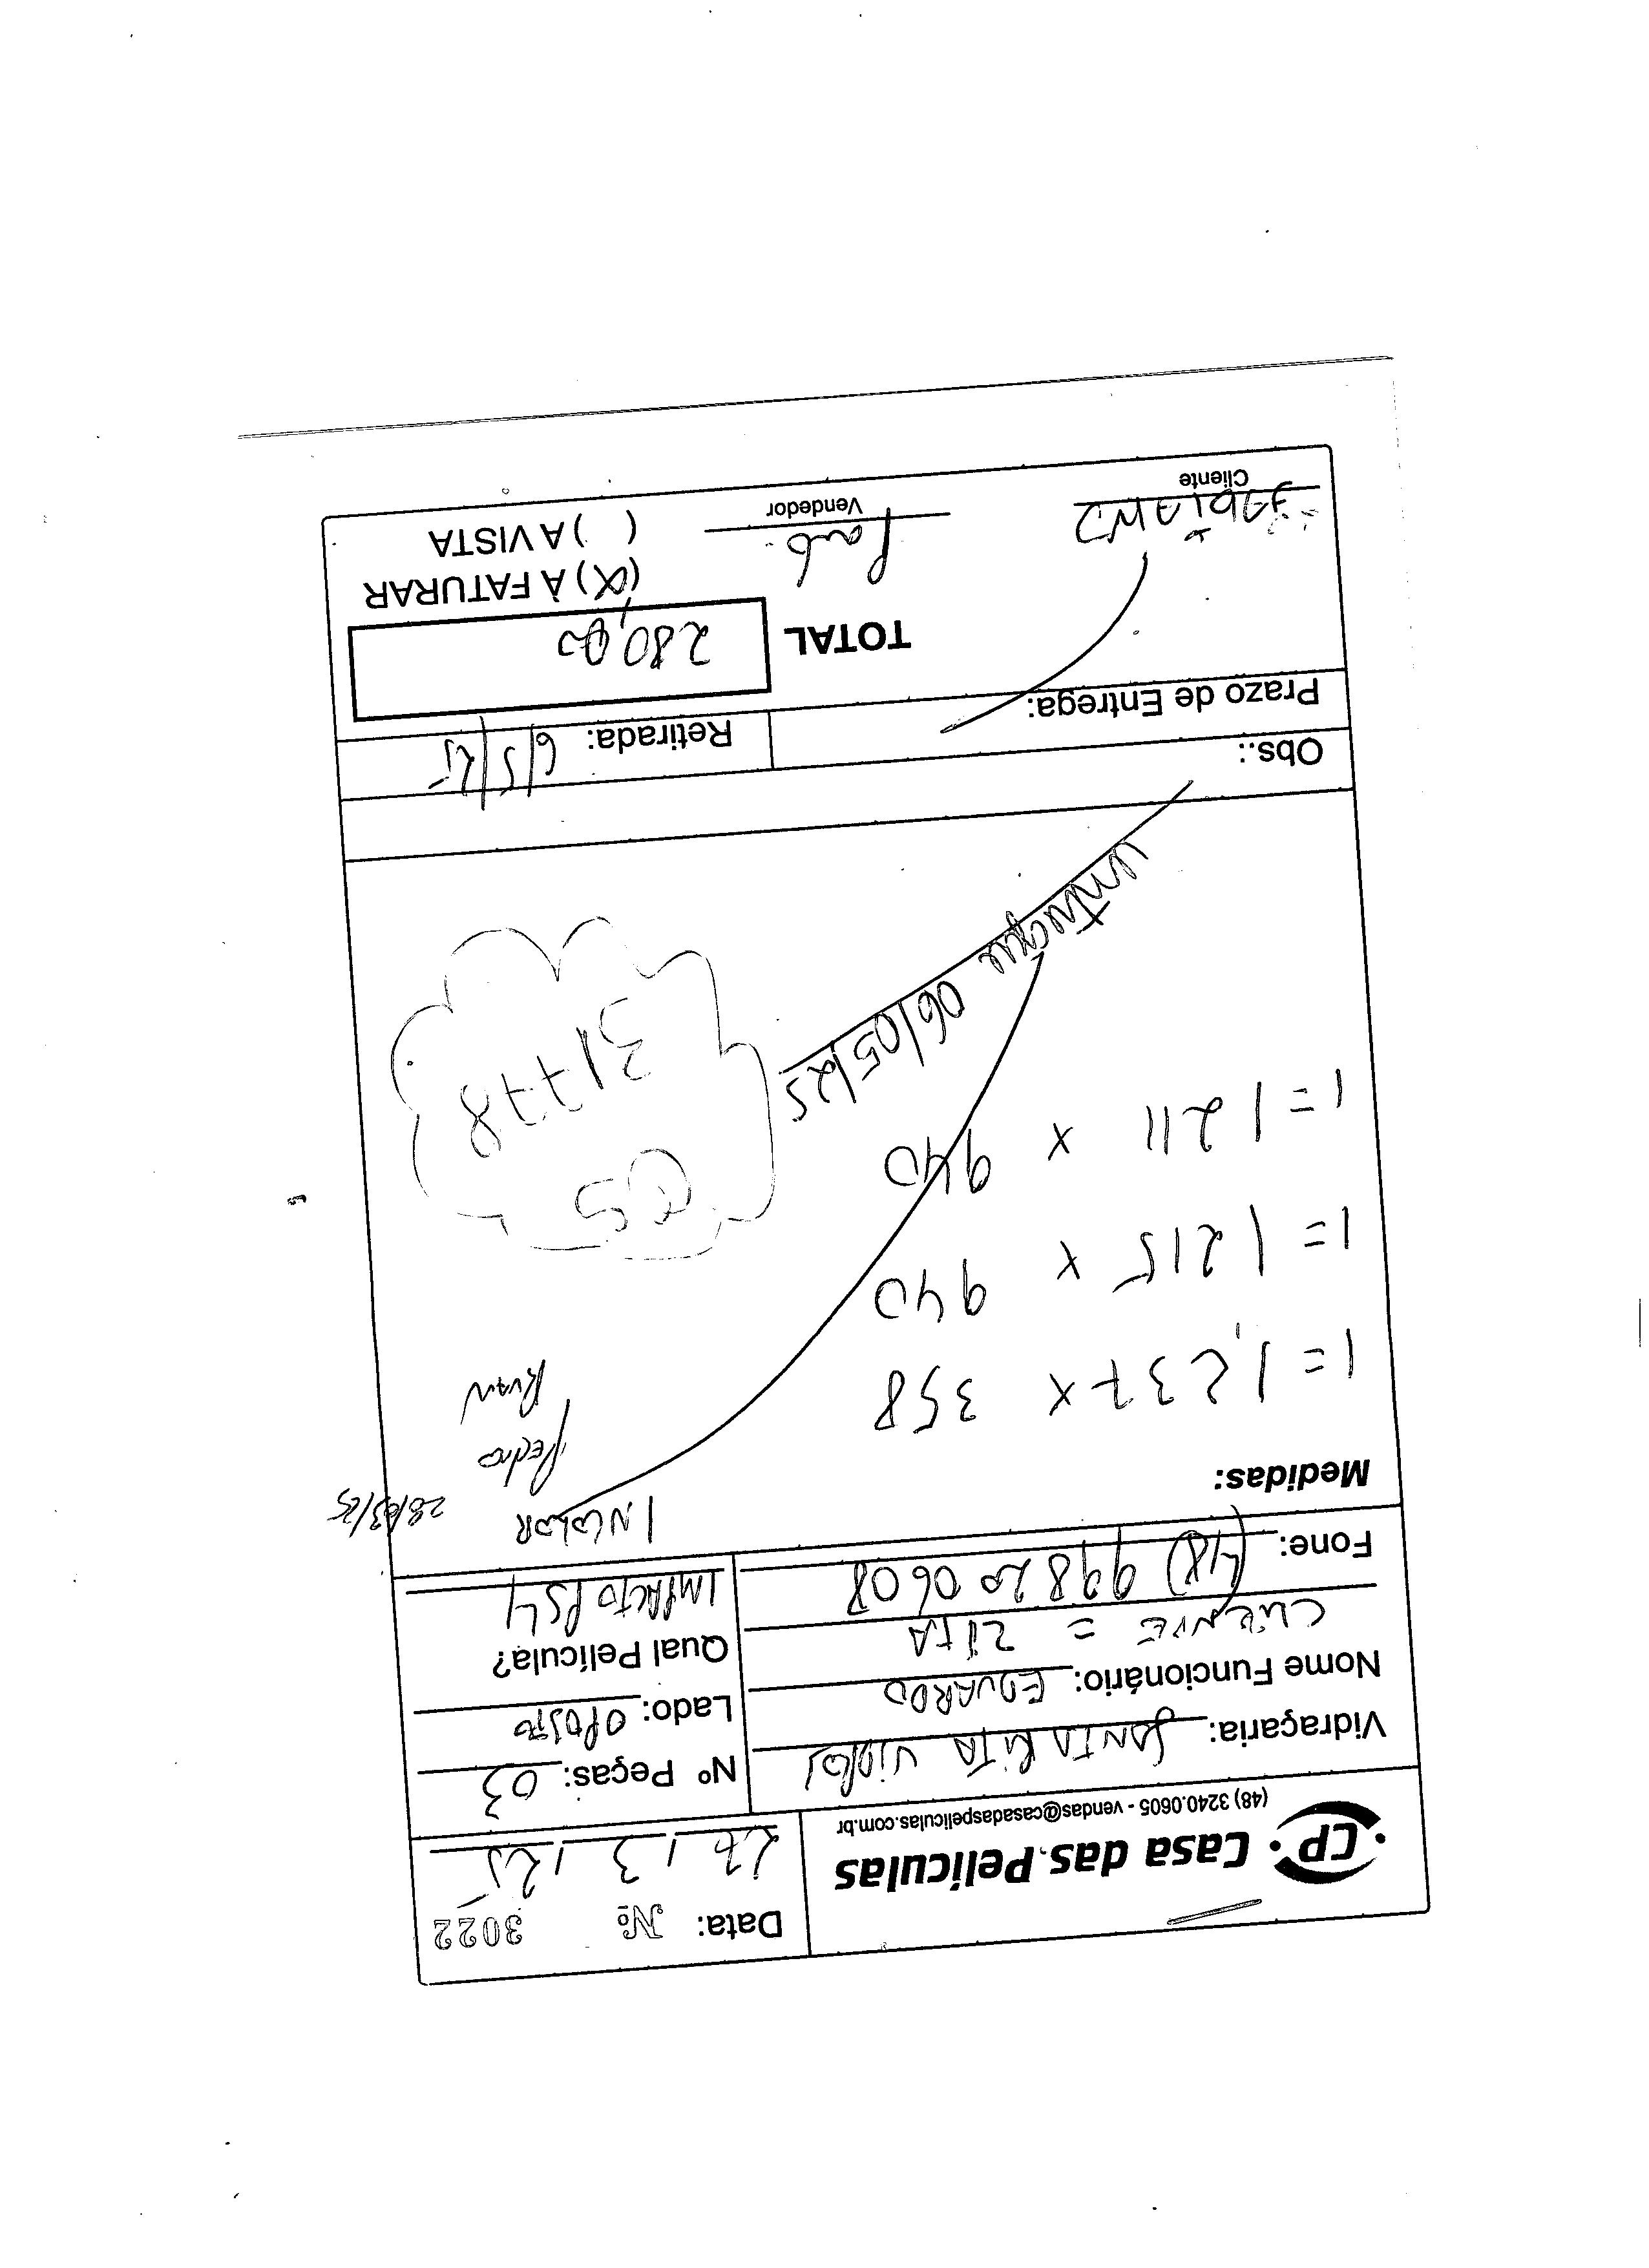 Data: Nº 3022
CP. Casa das Películas
(48) 3240.0605 - vendas@casadaspeliculas.com.br
Vidraçaria: SANTA RITA VIDROS
Nº Peças: 03
Nome Funcionário: EDUARDO
Lado: OPOSTO
CLIENTE = ZITA
Qual Película?
IMPACTO PS4
Fone: (48) 99820 0608
INCOLOR
28/03/25
Medidas:
Pedro
Ruan
1 = 1237 x 358
1 = 1215 x 940
1 = 1211 x 940
OS
31778
entregue 06/05/25
Obs.:
Prazo de Entrega:
Retirada: 6/5/25
TOTAL 280,00
(X) À FATURAR
( ) A VISTA
FABIANO
Cliente
Vendedor